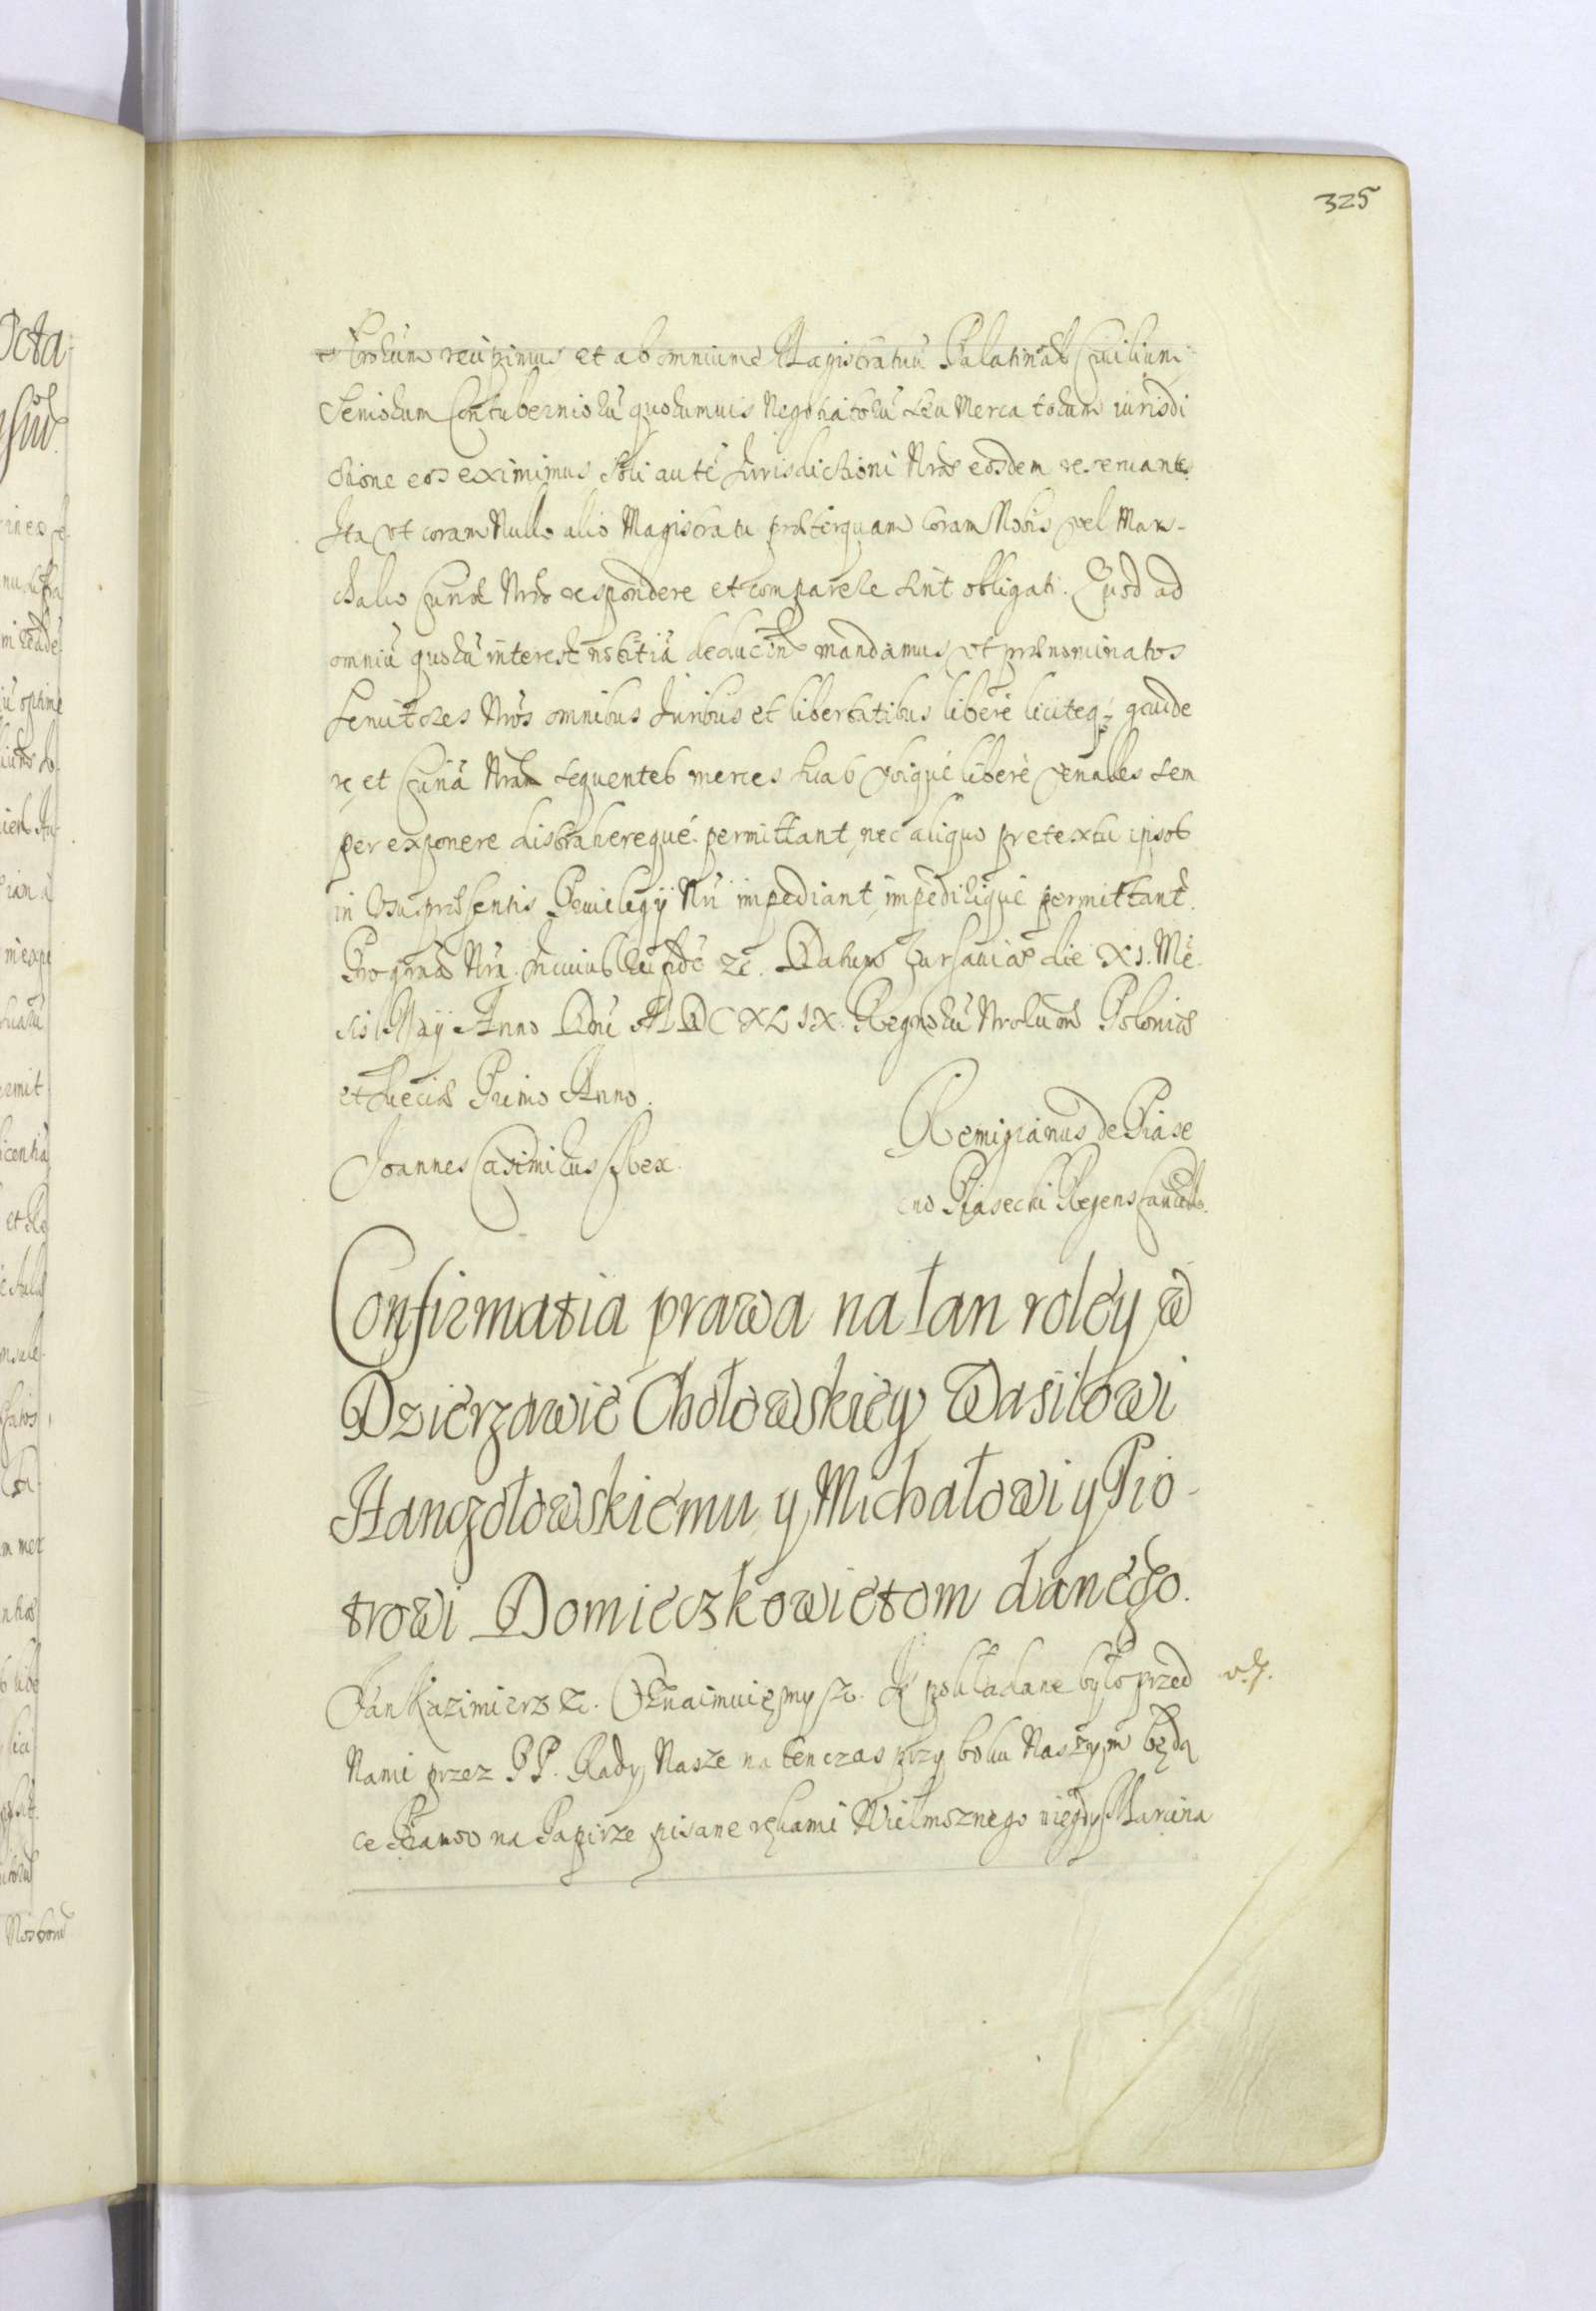 325
Nrorum recipimus et ab omnium Magistratuu Palatinał Civilium
Seniorum Contuberniorũ quorumvis Negotiatorũ seu Mercatorum iurisdi
ctione eos eximimus Soli autẽ Iurisdictioni Nrae eosdem reservantes
Ita vt coram Nullo alio Magistratu præterquam coram Nobis vel Mar-
chalco Curiæ Nræ respondere et comparere sint obligati. Quod ad
omniũ quorũ interest notitiã deducẽn mandamus vt prænominatos
Servitores Nrõs omnibus Iuribus et libertatibus liberè liciteq; gaude
re, et Curiã Nram sequentes merces suas vbiquè liberè venales sem
per exponere distraherequè permittant, nec aliquo pretextu ipsos
in Vsu præsentis Privilegÿ Nri impediant, impediriquè permittant.
Pro grãa Nra. In cuius rei fidẽ zc. Datum Varsaviæ die XI. Mẽ
sis Maÿ Anno Dni MDCXLIX. Regnorũ Nrorum Poloniæ
et Sueciæ Primo Anno.
Joannes Casimirus Rex.
Remigianus de Piase
czno Piasecki Regens Cancell.
Confirmatia prawa na łan roley w
Dzierzawie Chołowskiey Wasilowi
Hanczołowskiemu y Michałowi y Pio-
trowi Domieczkowietom danego.
Jan Kazimierz zc. Oznaimuięmy zc. Iż pokładane było przed
Nami przez PP. Rady Nasze na tenczas przy boku Naszym będą
ce Prawo na Papirze pisane rękami Wielmoznego niegdy Marcina